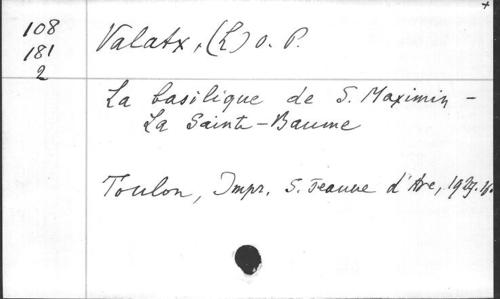 108
181
2
Valatx, (L) O. P.
La basilique de S. Maximin -
La Sainte-Baume
Toulon, Impr. S. Jeanne d'Arc, 1929.